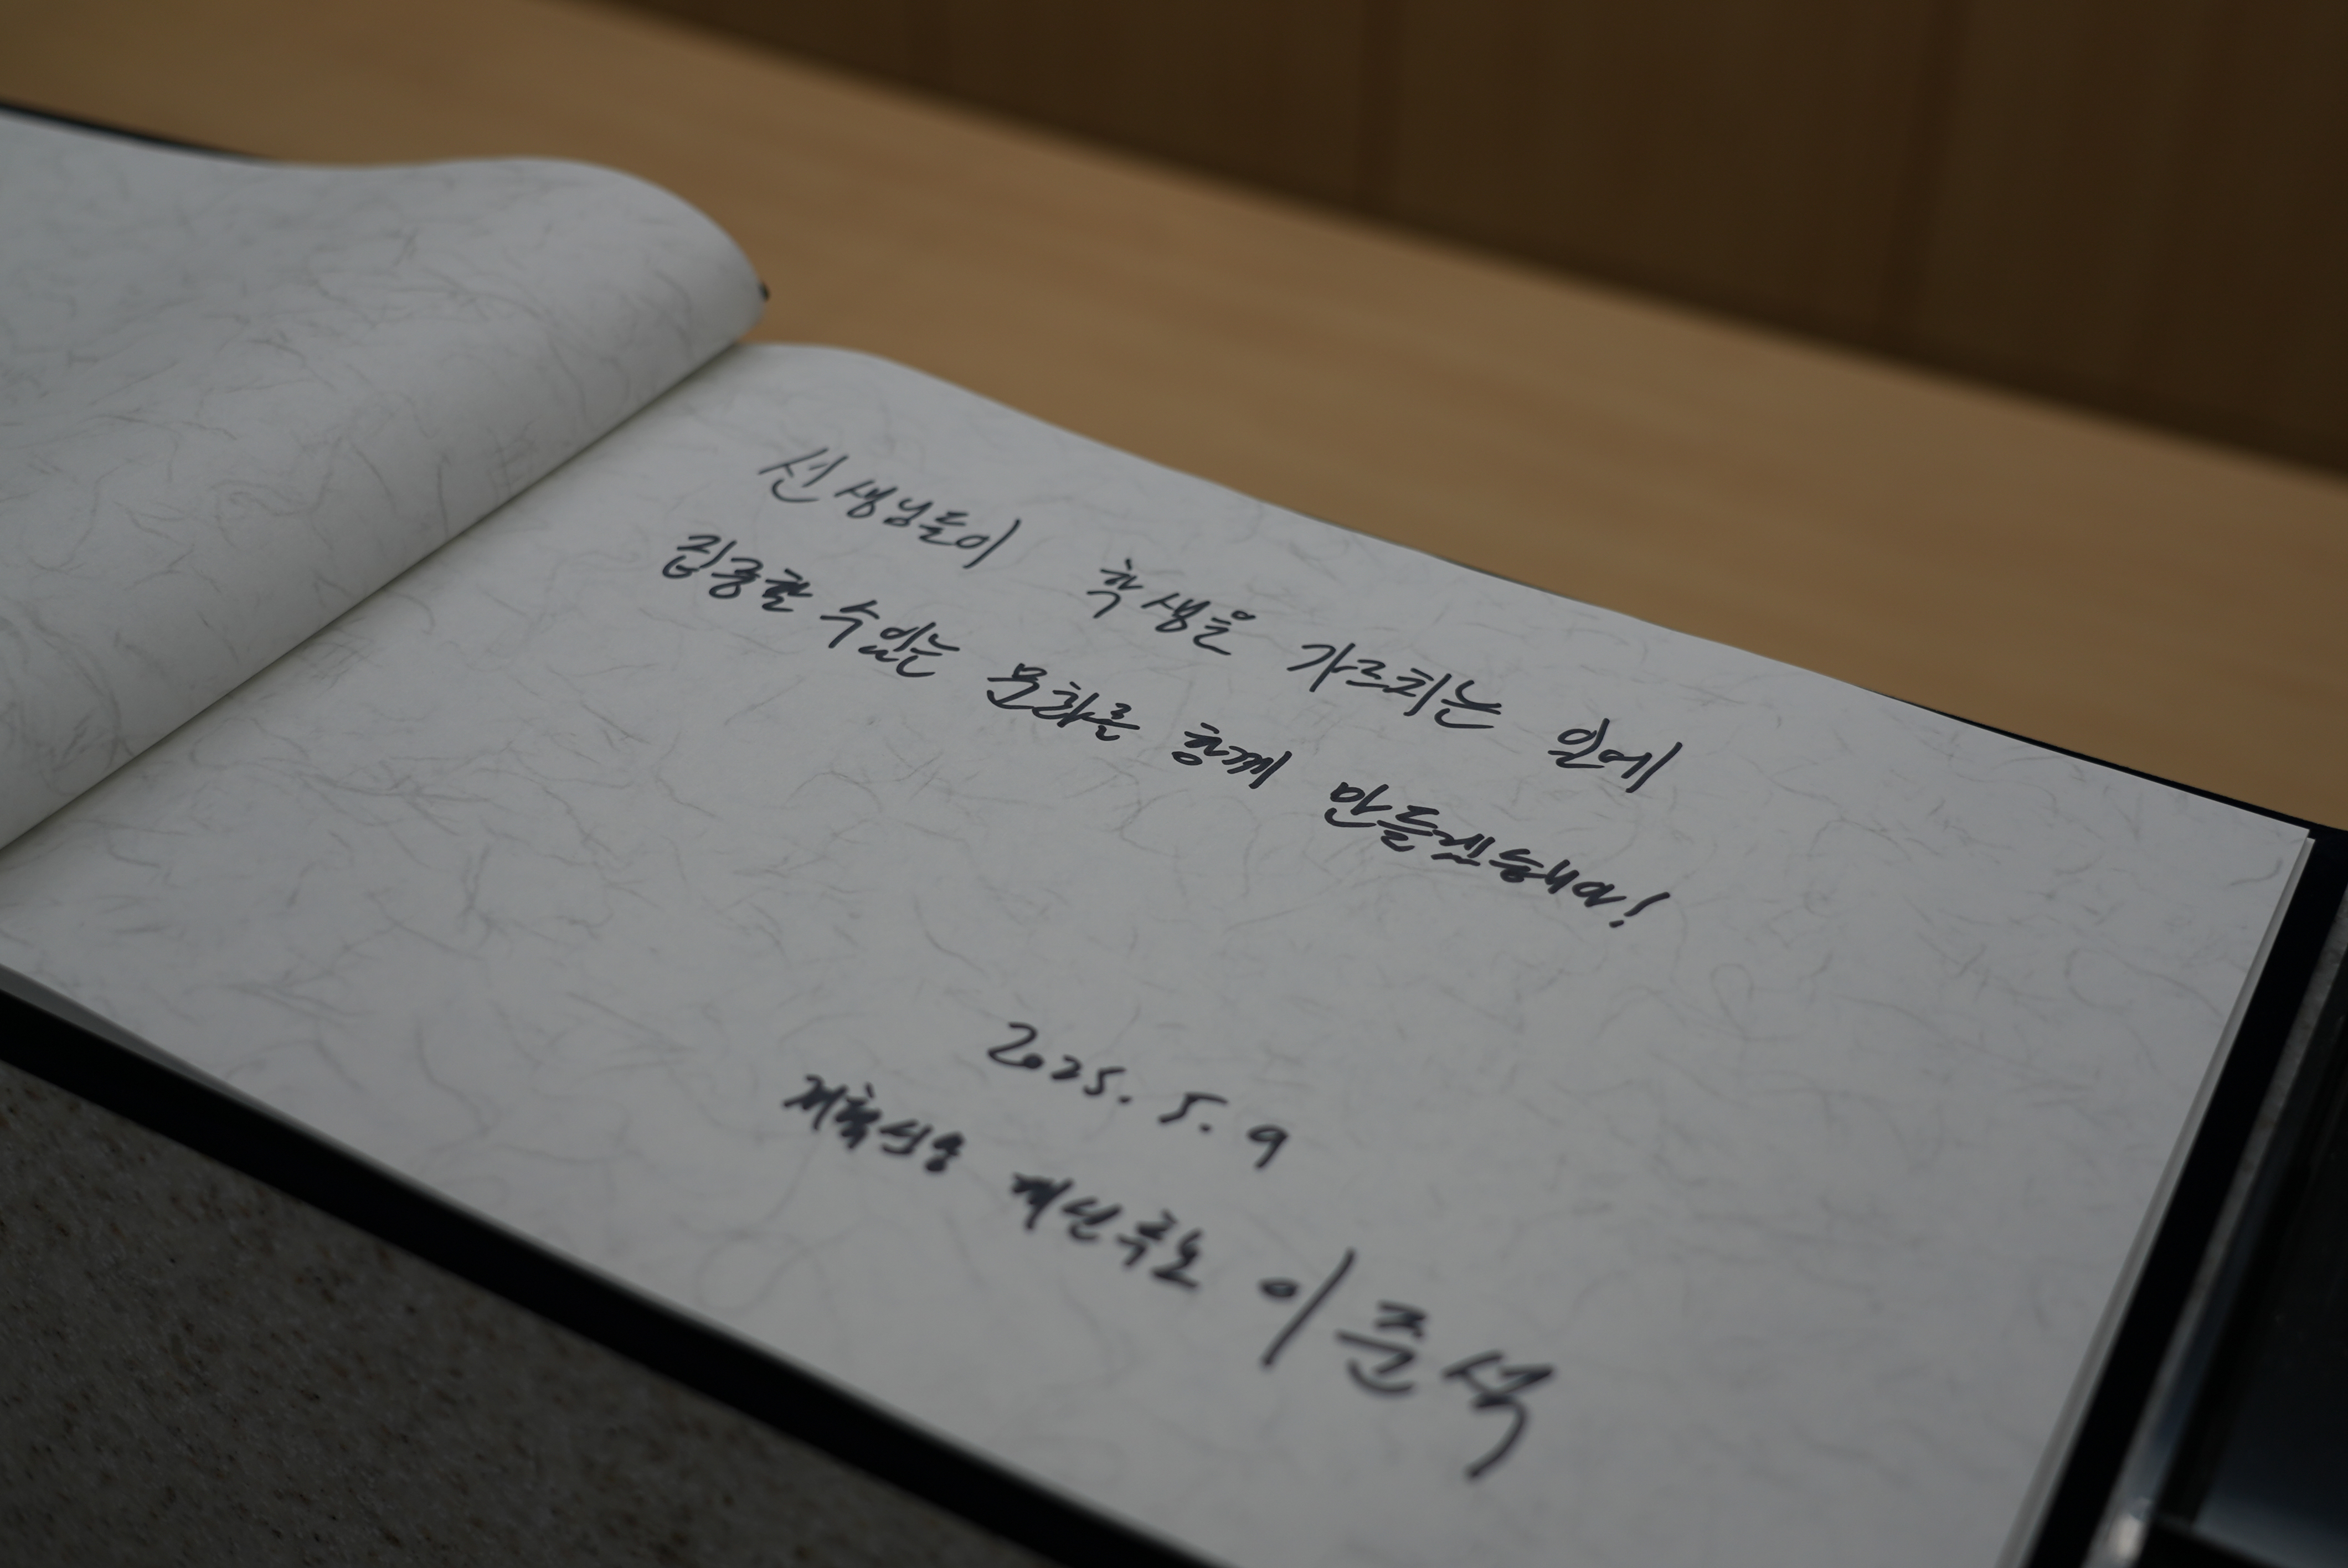 선생님들이 학생을 가르치는 일에
집중할 수 있는 문화를 함께 만들겠습니다!
2025. 5. 9
개혁신당 대선후보 이준석